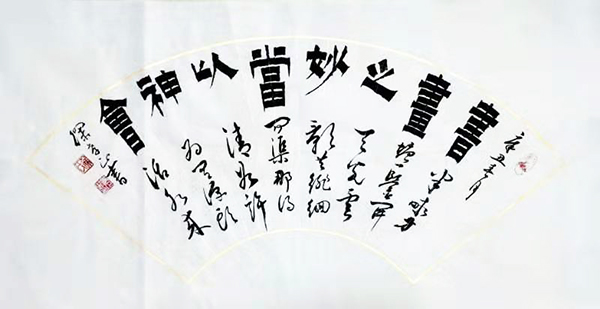 書畫之妙當以神會
半畝方
塘一鑒開
天光雲
影共徘徊
問渠那得
清如許
為有源頭
活水來
書